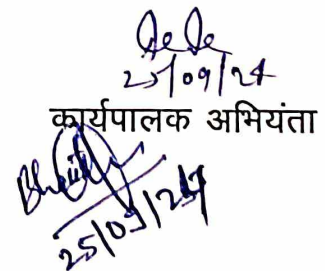 25/09/24
कार्यपालक अभियंता
25/09/24